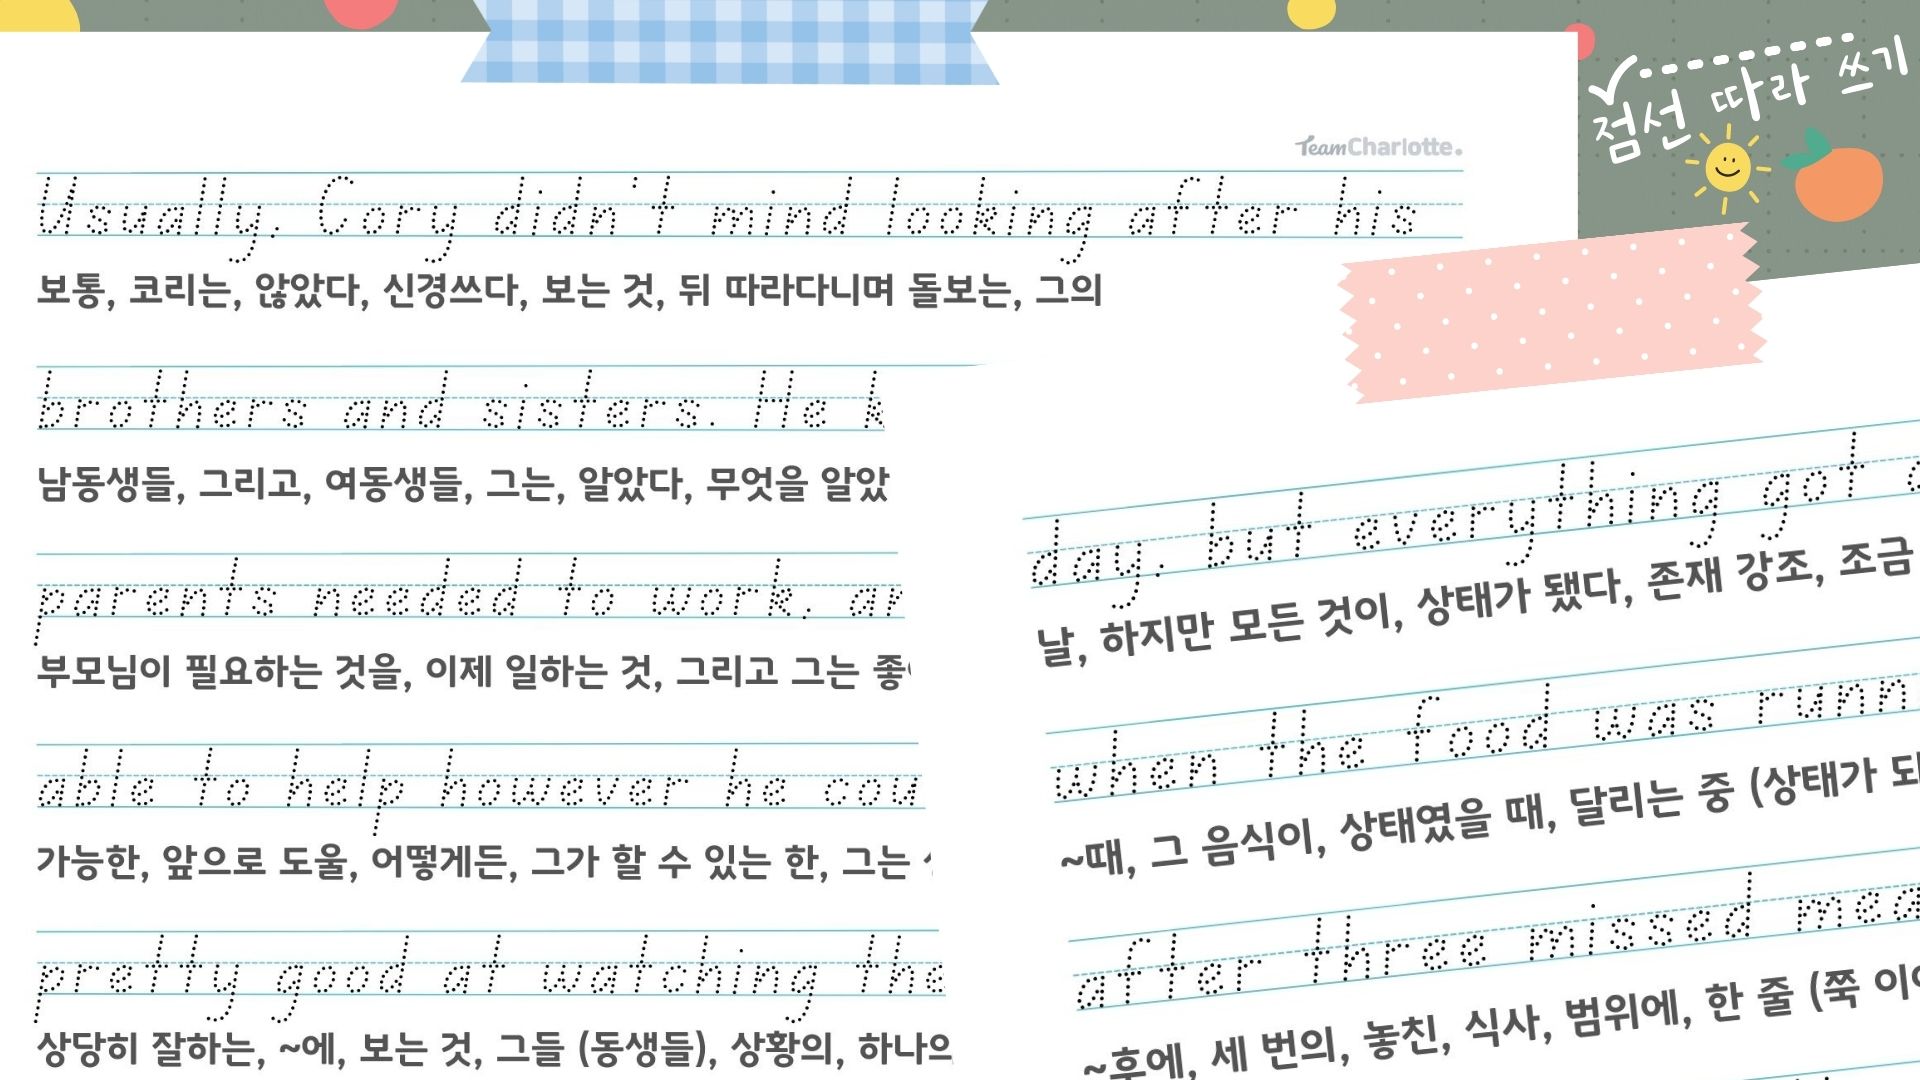 점선 따라 쓰기
TeamCharlotte.
Usually, Cory didn't mind looking after his
보통, 코리는, 않았다, 신경쓰다, 보는 것, 뒤 따라다니며 돌보는, 그의
brothers and sisters. He k
남동생들, 그리고, 여동생들, 그는, 알았다, 무엇을 알았
parents needed to work, an
부모님이 필요하는 것을, 이제 일하는 것, 그리고 그는
able to help however he cou
가능한, 앞으로 도울, 어떻게든, 그가 할 수 있는 한, 그는
pretty good at watching the
상당히 잘하는, ~에, 보는 것, 그들 (동생들), 상황의, 하나의
day, but everything got
날, 하지만 모든 것이, 상태가 됐다, 존재 강조, 조금
when the food was runn
~때, 그 음식이, 상태였을 때, 달리는 중 (상태가 되
after three missed mea
~후에, 세 번의, 놓친, 식사, 범위에, 한 줄 (쭉 이어